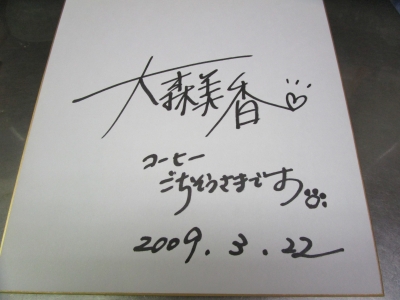 大森美香
コーヒー
ごちそうさまです
2009.3.22